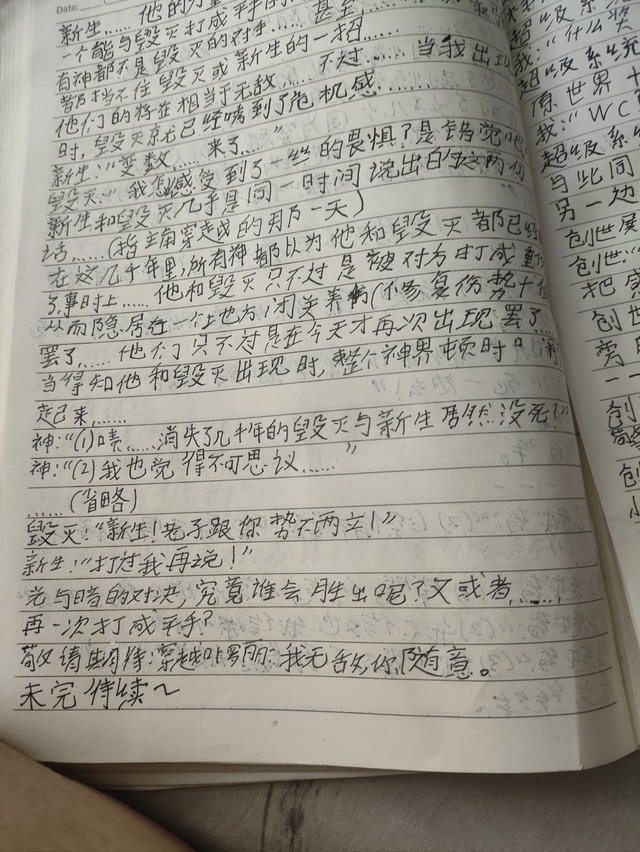 Date:
新生……他的力量
一个能与毁灭打成平手的……甚至
有神都不是毁灭的对手
都挡不住毁灭或新生的一招……
他们的存在相当于无敌……不过……当我出现
时，毁灭就已经嗅到了危机感
新生：“变数……来了……”
毁灭：“我怎感受到了一丝的畏惧？是错觉吧
新生和毁灭几乎是同一时间说出的这两句
话……(指主角穿越的那一天)
在这几千年里，所有神都以为他和毁灭都已经
了事时上……他和毁灭只不过是被对方打成重伤
从而隐居在一个地方闭关养伤(修复伤势
罢了……他们只不过是在今天才再次出现罢了
当得知他和毁灭出现时，整个神界顿时
起来……
神：“(1)啧……消失了几千年的毁灭与新生居然没死？”
神：“(2)我也觉得不可思议……”
……(省略)
毁灭：“新生！老子跟你势不两立！”
新生：“打过我再说！”
光与暗的对决，究竟谁会胜出呢？又或者……
再一次打成平手？
敬请期待：穿越叶罗丽：我无敌你随意。
未完待续~
超级系统
我：“什么
超级系统
原世界
我：“WC
超级系统
与此同
另一边
创世
创世：
把
创世